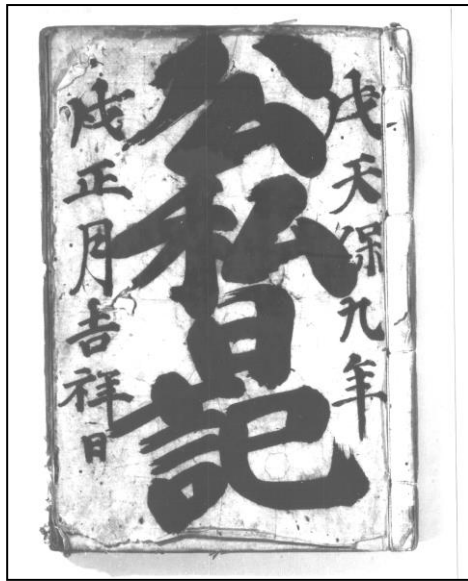 戊天保九年
公私日記
戌正月吉祥日